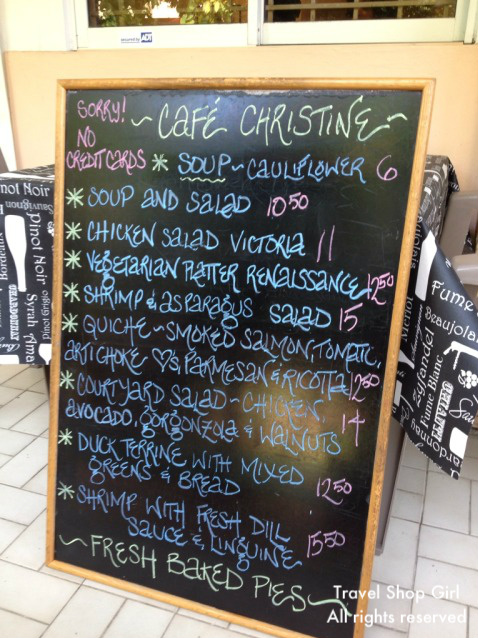 secured by ADT
SORRY!
NO
CREDIT CARDS
~ CAFÉ CHRISTINE ~
* SOUP ~ CAULIFLOWER 6
* SOUP AND SALAD 10.50
* CHICKEN SALAD VICTORIA 11
* VEGETARIAN PLATTER RENAISSANCE 12.50
* SHRIMP & ASPARAGUS SALAD 15
* QUICHE ~ SMOKED SALMON, TOMATE,
ARTICHOKE ♡s, PARMESAN & RICOTTA 12.50
* COURTYARD SALAD ~ CHICKEN,
AVOCADO, GORGONZOLA & WALNUTS 14
* DUCK TERRINE WITH MIXED
GREENS & BREAD 12.50
* SHRIMP WITH FRESH DILL
SAUCE & LINGUINE 15.50
~ FRESH BAKED PIES ~
Pinot Noir
Sauvignon
Bordeaux
Pinot Noir
Pinot Grigio
Syrah
Merlot
Fume
Beaujolai
Zinfandel
Fume Blanc
Travel Shop Girl
All rights reserved